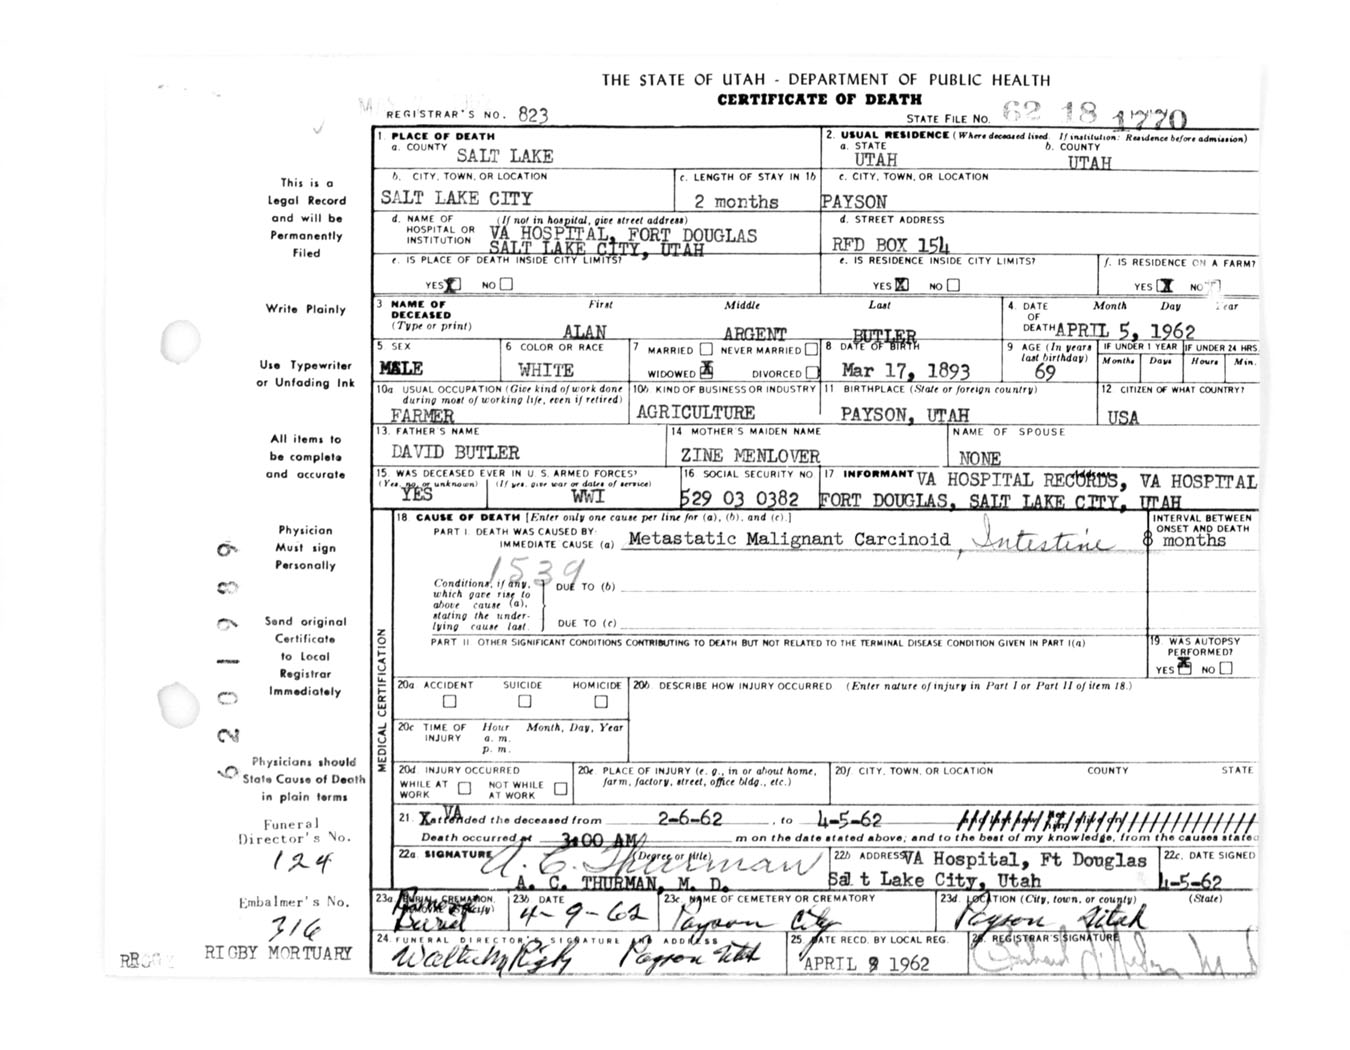 THE STATE OF UTAH - DEPARTMENT OF PUBLIC HEALTH
CERTIFICATE OF DEATH
REGISTRAR'S NO. 823
STATE FILE NO. 62 18 1770
1. PLACE OF DEATH
a. COUNTY SALT LAKE
2. USUAL RESIDENCE (Where deceased lived. If institution: Residence before admission)
a. STATE UTAH b. COUNTY UTAH
b. CITY, TOWN, OR LOCATION SALT LAKE CITY
c. LENGTH OF STAY IN 1b 2 months
c. CITY, TOWN, OR LOCATION PAYSON
d. NAME OF HOSPITAL OR INSTITUTION (If not in hospital, give street address)
VA HOSPITAL, FORT DOUGLAS
SALT LAKE CITY, UTAH
d. STREET ADDRESS
RFD BOX 154
e. IS PLACE OF DEATH INSIDE CITY LIMITS?
YES X NO
e. IS RESIDENCE INSIDE CITY LIMITS?
YES X NO
f. IS RESIDENCE ON A FARM?
YES X NO
3 NAME OF DECEASED (Type or print)
First Middle Last
ALAN ARGENT BUTLER
4. DATE OF DEATH Month Day Year
APRIL 5, 1962
5 SEX MALE
6 COLOR OR RACE WHITE
7 MARRIED NEVER MARRIED
WIDOWED X DIVORCED
8 DATE OF BIRTH Mar 17, 1893
9 AGE (In years last birthday) 69
IF UNDER 1 YEAR Months Days
IF UNDER 24 HRS. Hours Min.
10a USUAL OCCUPATION (Give kind of work done during most of working life, even if retired)
FARMER
10b KIND OF BUSINESS OR INDUSTRY
AGRICULTURE
11 BIRTHPLACE (State or foreign country)
PAYSON, UTAH
12 CITIZEN OF WHAT COUNTRY?
USA
13. FATHER'S NAME
DAVID BUTLER
14 MOTHER'S MAIDEN NAME
ZINE MENLOVER
NAME OF SPOUSE
NONE
15 WAS DECEASED EVER IN U. S. ARMED FORCES?
(Yes, no, or unknown) (If yes, give war or dates of service)
YES WWI
16 SOCIAL SECURITY NO
529 03 0382
17 INFORMANT VA HOSPITAL RECORDS, VA HOSPITAL
FORT DOUGLAS, SALT LAKE CITY, UTAH
18 CAUSE OF DEATH [Enter only one cause per line for (a), (b), and (c).]
PART I. DEATH WAS CAUSED BY:
IMMEDIATE CAUSE (a) Metastatic Malignant Carcinoid, Intestine
INTERVAL BETWEEN ONSET AND DEATH
8 months
1539
Conditions, if any, which gave rise to above cause (a), stating the underlying cause last.
DUE TO (b)
DUE TO (c)
PART II OTHER SIGNIFICANT CONDITIONS CONTRIBUTING TO DEATH BUT NOT RELATED TO THE TERMINAL DISEASE CONDITION GIVEN IN PART I(a)
19 WAS AUTOPSY PERFORMED?
YES X NO
MEDICAL CERTIFICATION
20a ACCIDENT SUICIDE HOMICIDE
20b. DESCRIBE HOW INJURY OCCURRED (Enter nature of injury in Part I or Part II of item 18.)
20c TIME OF INJURY Hour Month, Day, Year
a. m.
p. m.
20d INJURY OCCURRED
WHILE AT WORK NOT WHILE AT WORK
20e. PLACE OF INJURY (e. g., in or about home, farm, factory, street, office bldg., etc.)
20f. CITY, TOWN, OR LOCATION COUNTY STATE
21. VA attended the deceased from 2-6-62, to 4-5-62
Death occurred at 3:00 AM m on the date stated above; and to the best of my knowledge, from the causes stated
22a SIGNATURE (Degree or title)
A. C. Thurman
A. C. THURMAN, M. D.
22b ADDRESS VA Hospital, Ft Douglas
Salt Lake City, Utah
22c. DATE SIGNED
4-5-62
23a. BURIAL, CREMATION, REMOVAL (Specify)
Removal
Burial
23b DATE
4-9-62
23c NAME OF CEMETERY OR CREMATORY
Payson City
23d. LOCATION (City, town, or county) (State)
Payson Utah
24. FUNERAL DIRECTOR'S SIGNATURE AND ADDRESS
Rigby Payson Utah
25. DATE RECD. BY LOCAL REG.
APRIL 9 1962
26. REGISTRAR'S SIGNATURE
This is a
Legal Record
and will be
Permanently
Filed
Write Plainly
Use Typewriter
or Unfading Ink
All items to
be complete
and accurate
Physician
Must sign
Personally
Send original
Certificate
to Local
Registrar
Immediately
Physicians should
State Cause of Death
in plain terms
Funeral
Director's No.
124
Embalmer's No.
316
RIGBY MORTUARY